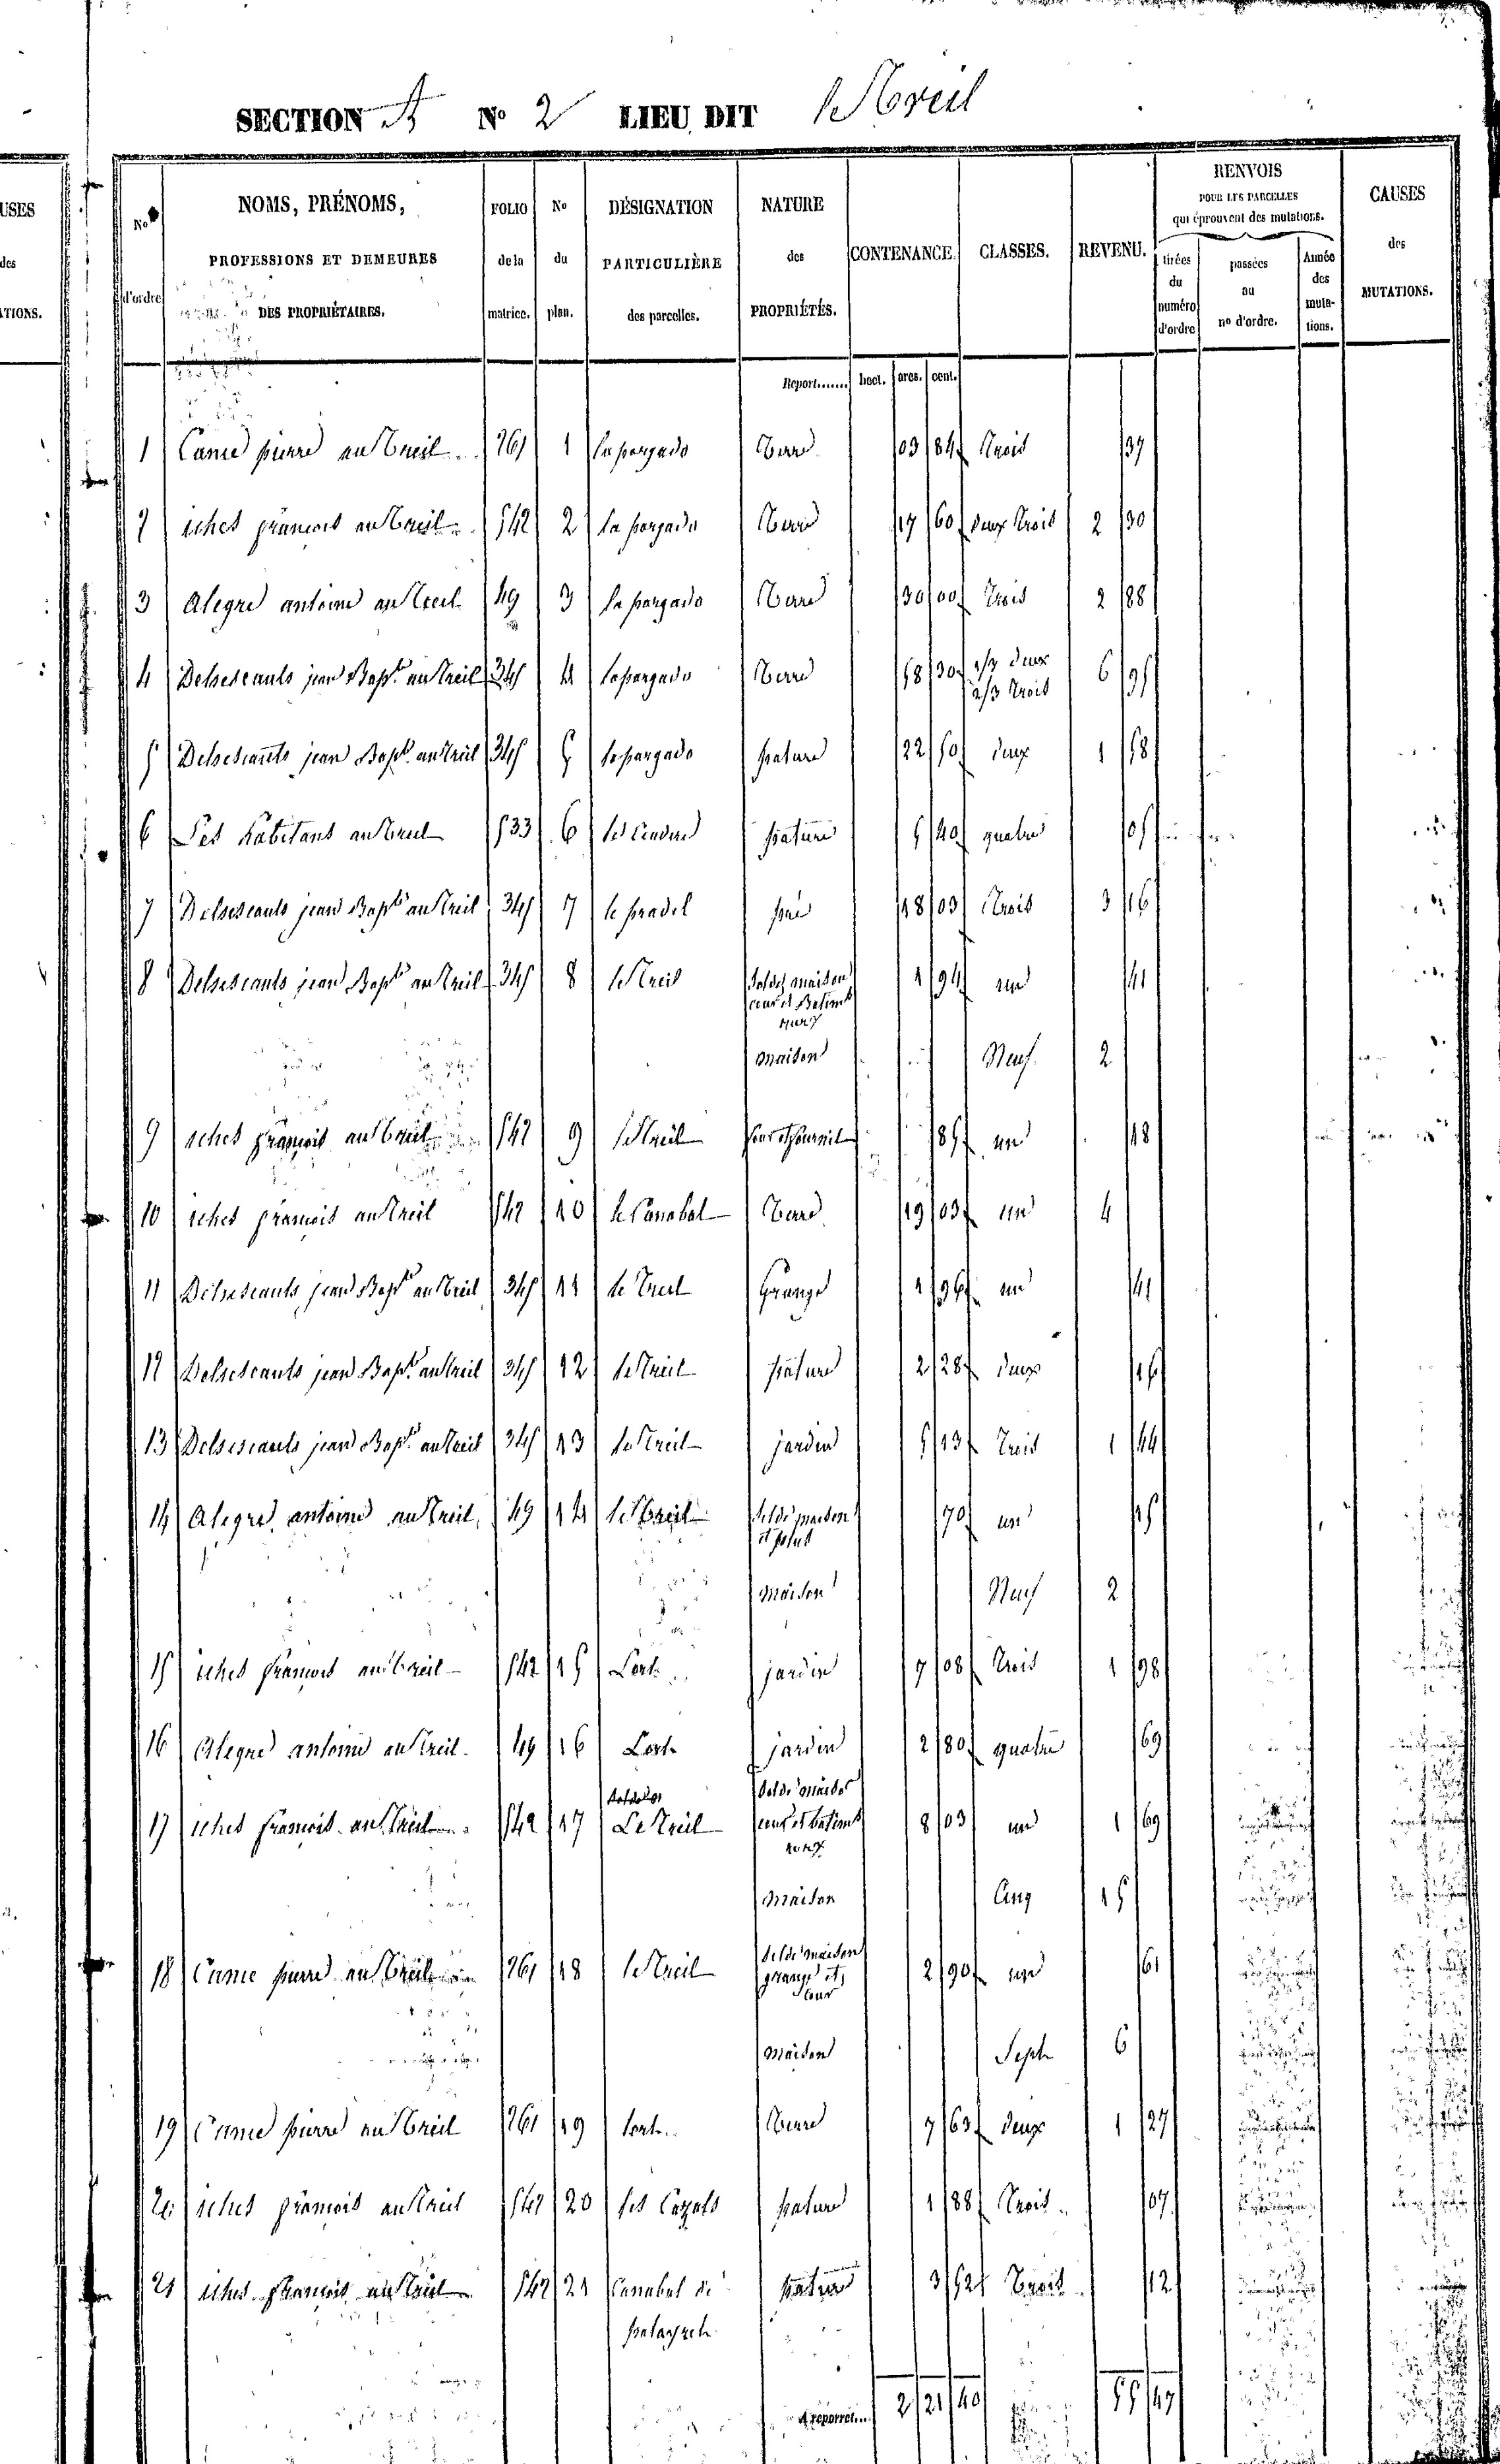 SECTION A N° 2 LIEU DIT le Treil
USES des TIONS.
Nos d'ordre
NOMS, PRÉNOMS, PROFESSIONS ET DEMEURES DES PROPRIÉTAIRES.
FOLIO de la matrice.
N° du plan.
DÉSIGNATION PARTICULIÈRE des parcelles.
NATURE des PROPRIÉTÉS.
CONTENANCE.
CLASSES.
REVENU.
RENVOIS POUR LES PARCELLES qui éprouvent des mutations.
tirées du numéro d'ordre
passées au n° d'ordre.
Année des mutations.
CAUSES des MUTATIONS.
Report....... hect. ares. cent.
1 pierre au Treil 261 1 la pargado Terre 03 84 Trois 37
2 iches françois au Treil 542 2 la pargado Terre 17 60 deux Trois 2 30
3 Alegre antoine au Treil 49 3 la pargado Terre 30 00 Trois 2 88
4 jean Bapt. au Treil 345 4 la pargado Terre 58 30 1/3 deux 2/3 Trois 6 95
5 jean Bapt. au Treil 345 5 la pargado pature 22 50 deux 1 58
6 Les habitans au Treil 533 6 pature 5 40 quatre 05
7 jean Bapt. au Treil 345 7 le pradel pré 18 03 Trois 3 16
8 jean Bapt. au Treil 345 8 le Treil sol de maison cour et Batimt 1 94 un 41
maison Neuf 2
9 iches françois au Treil 542 9 le Treil 85 un 18
10 iches françois au Treil 542 10 le Canabal Terre 19 03 un 4
11 jean Bapt. au Treil 345 11 le Treil Grange 1 96 un 41
12 jean Bapt. au Treil 345 12 le Treil pature 2 28 deux 16
13 jean Bapt. au Treil 345 13 le Treil jardin 5 13 Trois 1 44
14 Alegre antoine au Treil 49 14 le Treil sol de maison et 70 un 15
maison Neuf 2
15 iches françois au Treil 542 15 Lort jardin 7 08 Trois 1 98
16 Alegre antoine au Treil 49 16 Lort jardin 2 80 quatre 69
17 iches françois au Treil 542 17 Le Treil sol de maison cour et batimt 8 03 un 1 69
maison Cinq 15
18 pierre au Treil 261 18 le Treil sol de maison grange et cour 2 90 un 61
maison Sept 6
19 pierre au Treil 261 19 lort Terre 7 63 deux 1 27
20 iches françois au Treil 542 20 les Cazals pature 1 88 Trois 07
21 iches françois au Treil 542 21 Canabal de pature 3 52 Trois 12
A reporter.... 2 21 40 55 47